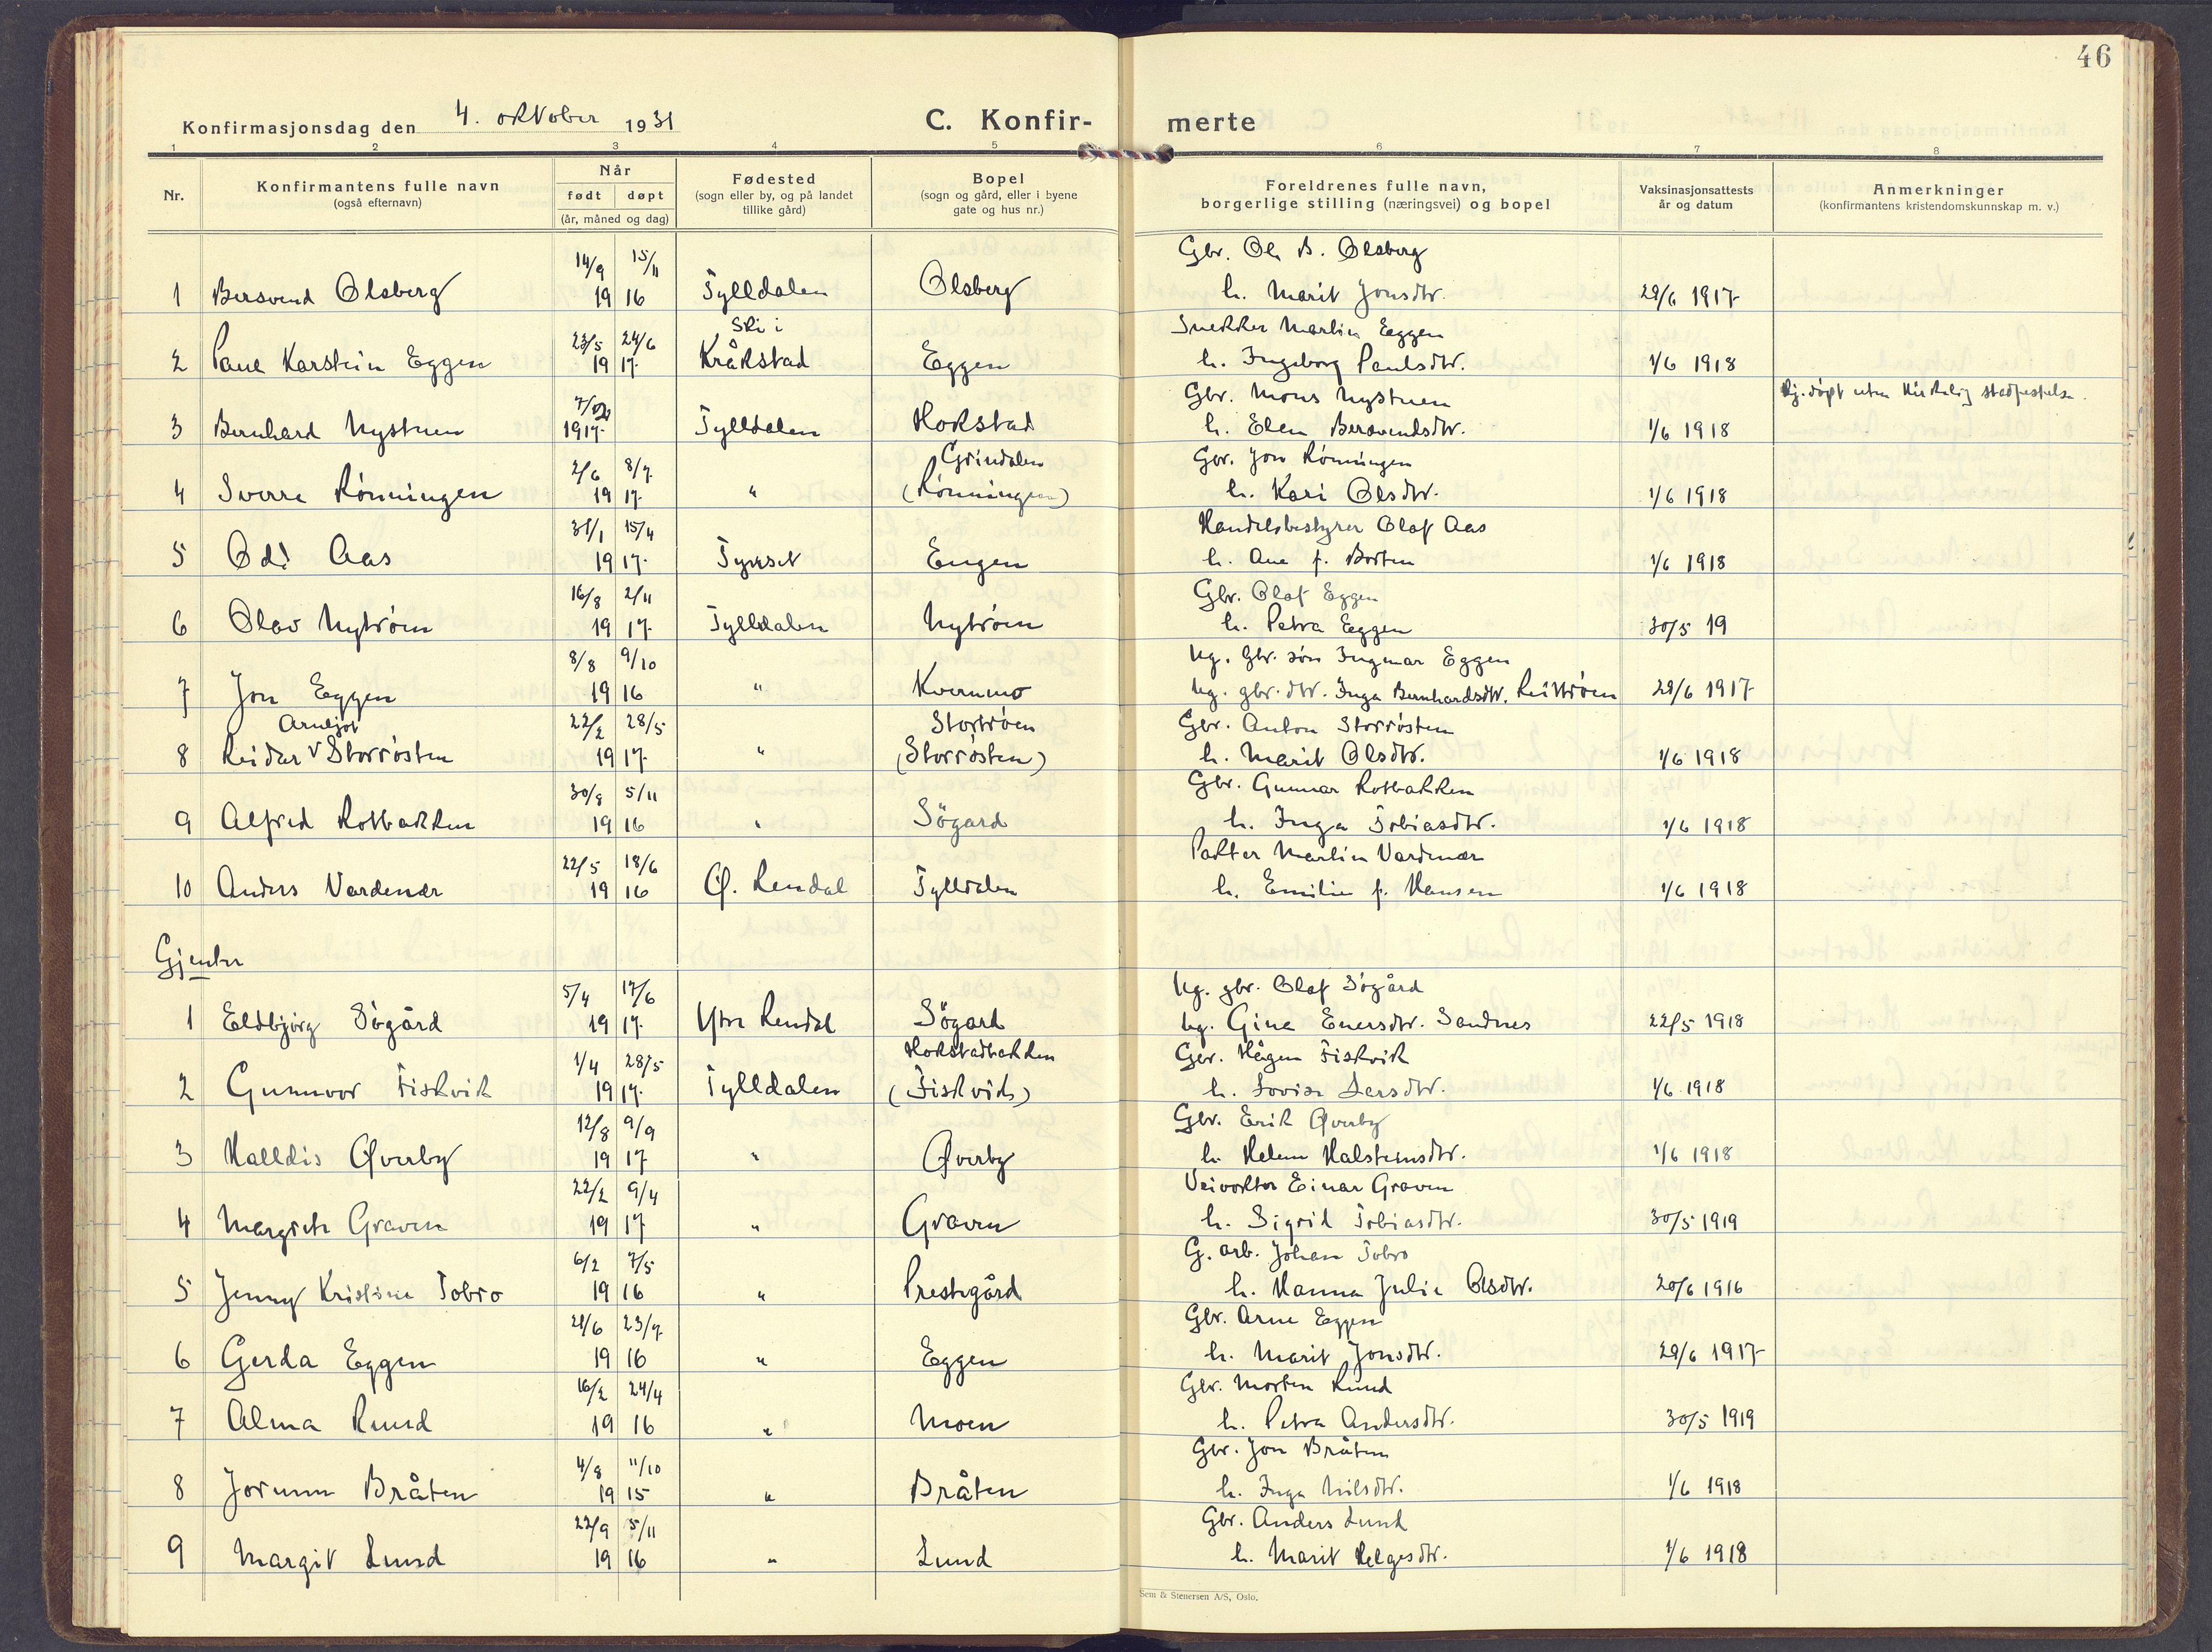 46
Konfirmasjonsdag den 4. oktober 1931
C. Konfirmerte
1 2 3 4 5 6 7 8
Nr.
Konfirmantens fulle navn
(også efternavn)
Når
født døpt
(år, måned og dag)
Fødested
(sogn eller by, og på landet
tillike gård)
Bopel
(sogn og gård, eller i byene
gate og hus nr.)
Foreldrenes fulle navn,
borgerlige stilling (næringsvei) og bopel
Vaksinasjonsattests
år og datum
Anmerkninger
(konfirmantens kristendomskunnskap m. v.)
14/9 15/11 Gbr. Ole B. Olsberg
1 Bersvend Olsberg 1916 Tylldalen Olsberg h. Marit Jonsdtr. 29/6 1917
23/5 24/6 Ski i Snekker Martin Eggen
2 Paul Karstein Eggen 1917 Kråkstad Eggen h. Ingeborg Paulsdtr. 1/6 1918
Gbr. Mons Nystuen Hj.døpt uten kirkelig stadfestelse.
3 Bernhard Nystuen 1917 Tylldalen Hokstad h. Elen Bersvendsdtr. 1/6 1918
2/6 8/7 Grindalen Gbr. Jon Rønningen
4 Sverre Rønningen 1917 " (Rønningen) h. Kari Olsdtr. 1/6 1918
31/1 15/4 Handelsbestyrer Olaf Aas
5 Odd Aas 1917 Tynset Engen h. Ane f. Borten 1/6 1918
16/8 2/11 Gbr. Olaf Eggen
6 Olav Nytrøen 1917 Tylldalen Nytrøen h. Petra Eggen 30/5 19
8/8 9/10 Ug. gbr. søn Ingmar Eggen
7 Jon Eggen 1916 " Kvernmo ug. gbr. dtr. Inga Bernhardsdtr. Reittrøen 29/6 1917
Arneljot 22/2 28/5 Stortrøen Gbr. Anton Storrøsten
8 Reidar v Storrøsten 1917 " (Storrøsten) h. Marit Olsdtr. 1/6 1918
30/8 5/11 Gbr. Gunnar Rotbakken
9 Alfred Rotbakken 1916 " Søgard h. Inga Tobiasdtr. 1/6 1918
22/5 18/6 Pakter Martin Vardenær
10 Anders Vardenær 1916 Ø. Rendal Tylldalen h. Emilie f. Hansen 1/6 1918
Gjenter
5/4 17/6 Ug. gbr. Olaf Søgård
1 Eldbjørg Søgård 1917 Ytre Rendal Søgard ug. Gina Enersdtr. Sandnes 22/5 1918
1/4 28/5 Hokstadbakken Gbr. Hågen Fiskvik
2 Gunnvor Fiskvik 1917 Tylldalen (Fiskvik) h. Lovise Larsdtr. 1/6 1918
12/8 9/9 Gbr. Erik Øverby
3 Halldis Øverby 1917 " Øverby h. Helene Halsteinsdtr. 1/6 1918
22/2 9/4 Veivokter Einar Graven
4 Margrete Graven 1917 " Graven h. Sigrid Tobiasdtr. 30/5 1919
6/2 7/5 G. arb. Johan Tobro
5 Jenny Kristine Tobro 1916 " Prestegård h. Hanna Julie Olsdtr. 20/6 1916
21/6 23/7 Gbr. Arne Eggen
6 Gerda Eggen 1916 " Eggen h. Marit Jonsdtr. 29/6 1917
16/2 24/4 Gbr. Morten Rund
7 Alma Rund 1916 " Moen h. Petra Andersdtr. 30/5 1919
4/8 11/10 Gbr. Jon Bråten
8 Jorunn Bråten 1915 " Bråten h. Inga Nilsdtr. 1/6 1918
22/9 5/11 Gbr. Anders Lund
9 Margit Lund 1916 " Lund h. Marit Helgesdtr. 1/6 1918
Sem & Stenersen A/S, Oslo.